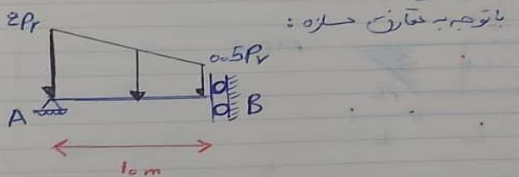 با توجه به تقارن سازه :
2Pr
0.5Pr
A
B
10m